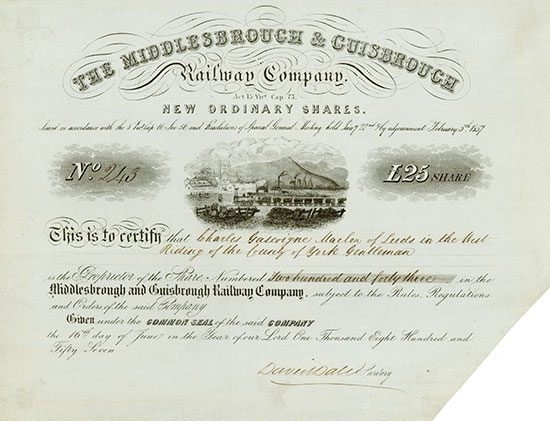 THE MIDDLESBROUGH & GUISBROUGH
Railway Company.
Act 15 Vict. Cap. 73.
NEW ORDINARY SHARES.
Issued in accordance with the Sec. and Resolutions of Special General Meeting held Jany 22nd & by adjournment February 5th 1857
No. 243
£25 SHARE
This is to certify that Charles Gascoigne of Leeds in the West
Riding of the County of York Gentleman
is the Proprietor of the Share Numbered Two hundred and forty three in the
Middlesbrough and Guisbrough Railway Company, subject to the Rules, Regulations
and Orders of the said Company
Given under the COMMON SEAL of the said COMPANY
the 16th day of June in the Year of our Lord One Thousand Eight Hundred and
Fifty Seven
David Dale